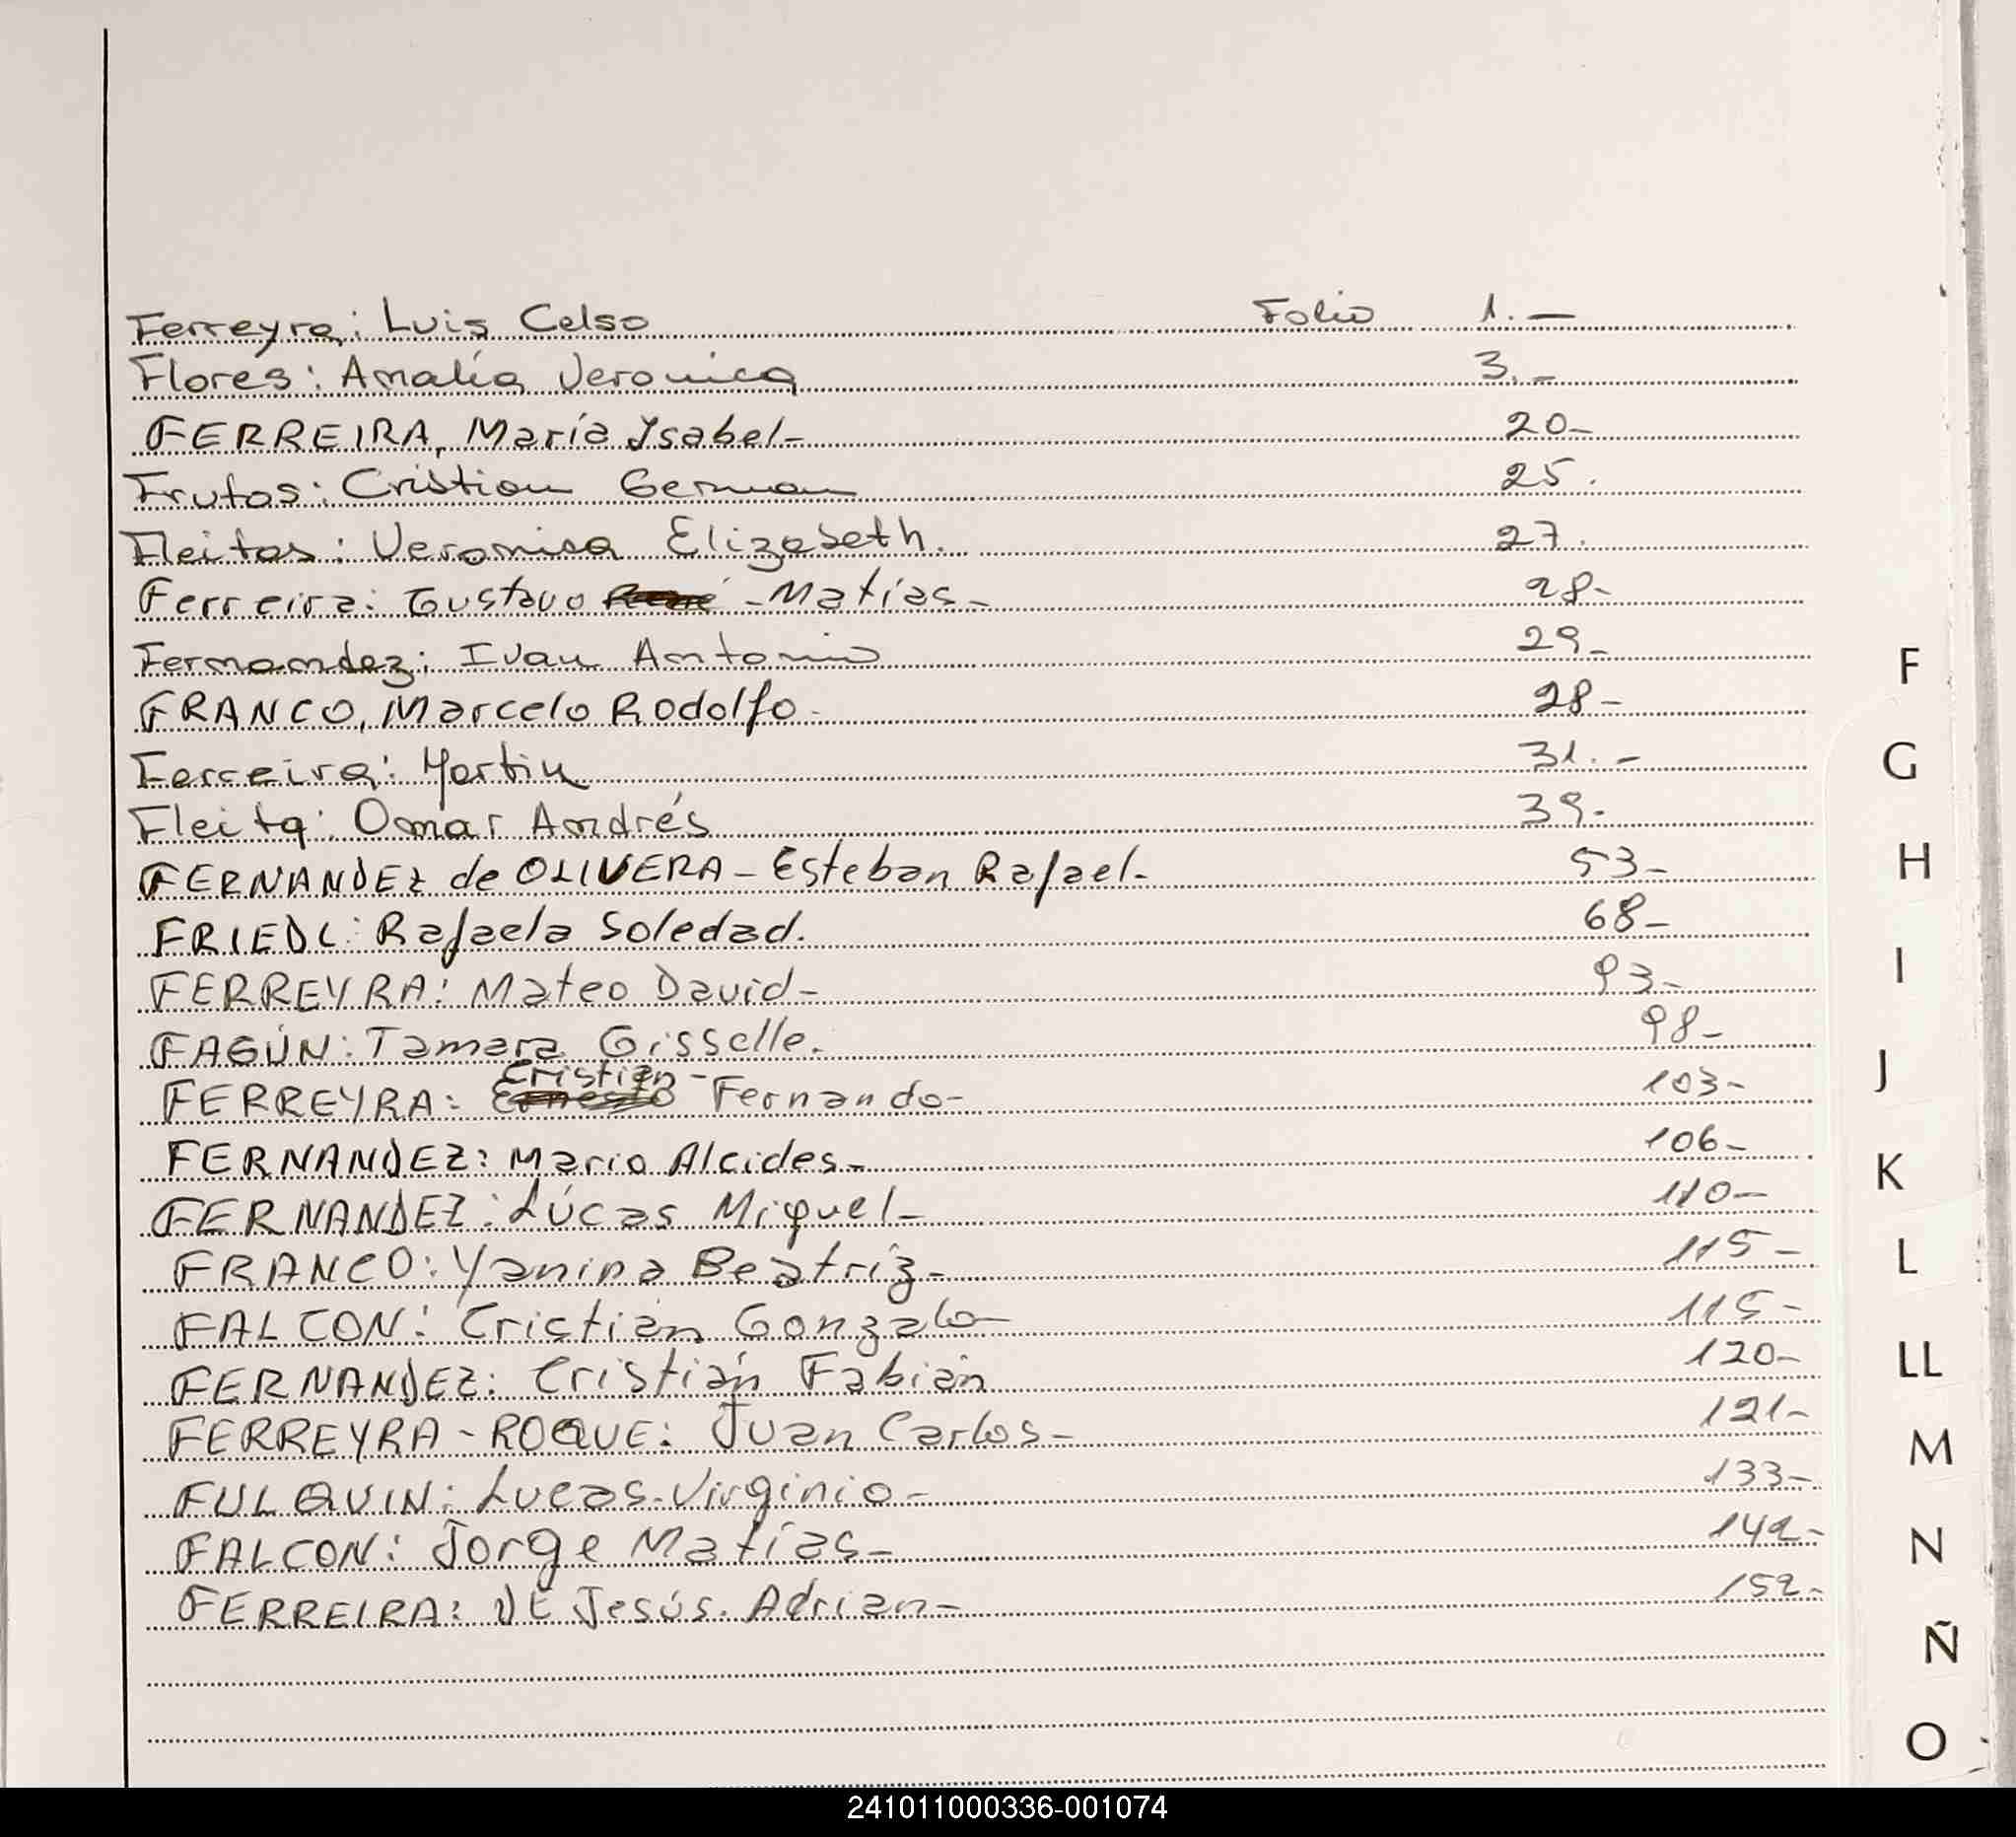 Ferreyra: Luis Celso Folio 1.—
Flores: Amalia Veronica 3.-
FERREIRA, María Ysabel- 20-
Frutos: Cristian German 25.
Fleitas: Veronica Elizabeth. 27.
Ferreira: Gustavo René - Matías- 28-
Fernandez: Ivan Antonio 29-
FRANCO, Marcelo Rodolfo- 28-
Ferreira: Martin 31.-
Fleita: Omar Andrés 39-
FERNANDEZ de OLIVERA - Esteban Rafael- 53-
FRIEDL: Rafaela Soledad. 68-
FERREYRA: Mateo David- 93-
FAGÚN: Tamara Gisselle. 98-
Cristian-
FERREYRA: Ernesto Fernando- 103-
FERNANDEZ: Mario Alcides- 106-
FERNANDEZ: Lúcas Miguel- 110-
FRANCO: Yanina Beatriz- 115-
FALCON: Cristián Gonzalo- 115-
FERNANDEZ: Cristián Fabián 120-
FERREYRA-ROQUE: Juan Carlos- 121-
FULQUIN: Lucas-Virginio- 133-
FALCON: Jorge Matías- 142-
FERREIRA: DE Jesús. Adrian- 152-
F
G
H
I
J
K
L
LL
M
N
Ñ
O
241011000336-001074